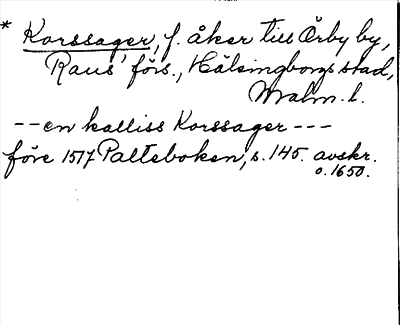 * Korssager, f. åker till Örby by,
Raus förs., Hälsingborgs stad,
Malm. l.
-- en kalliss Korssager ---
före 1517 Palteboken, s. 145. avskr.
o. 1650.